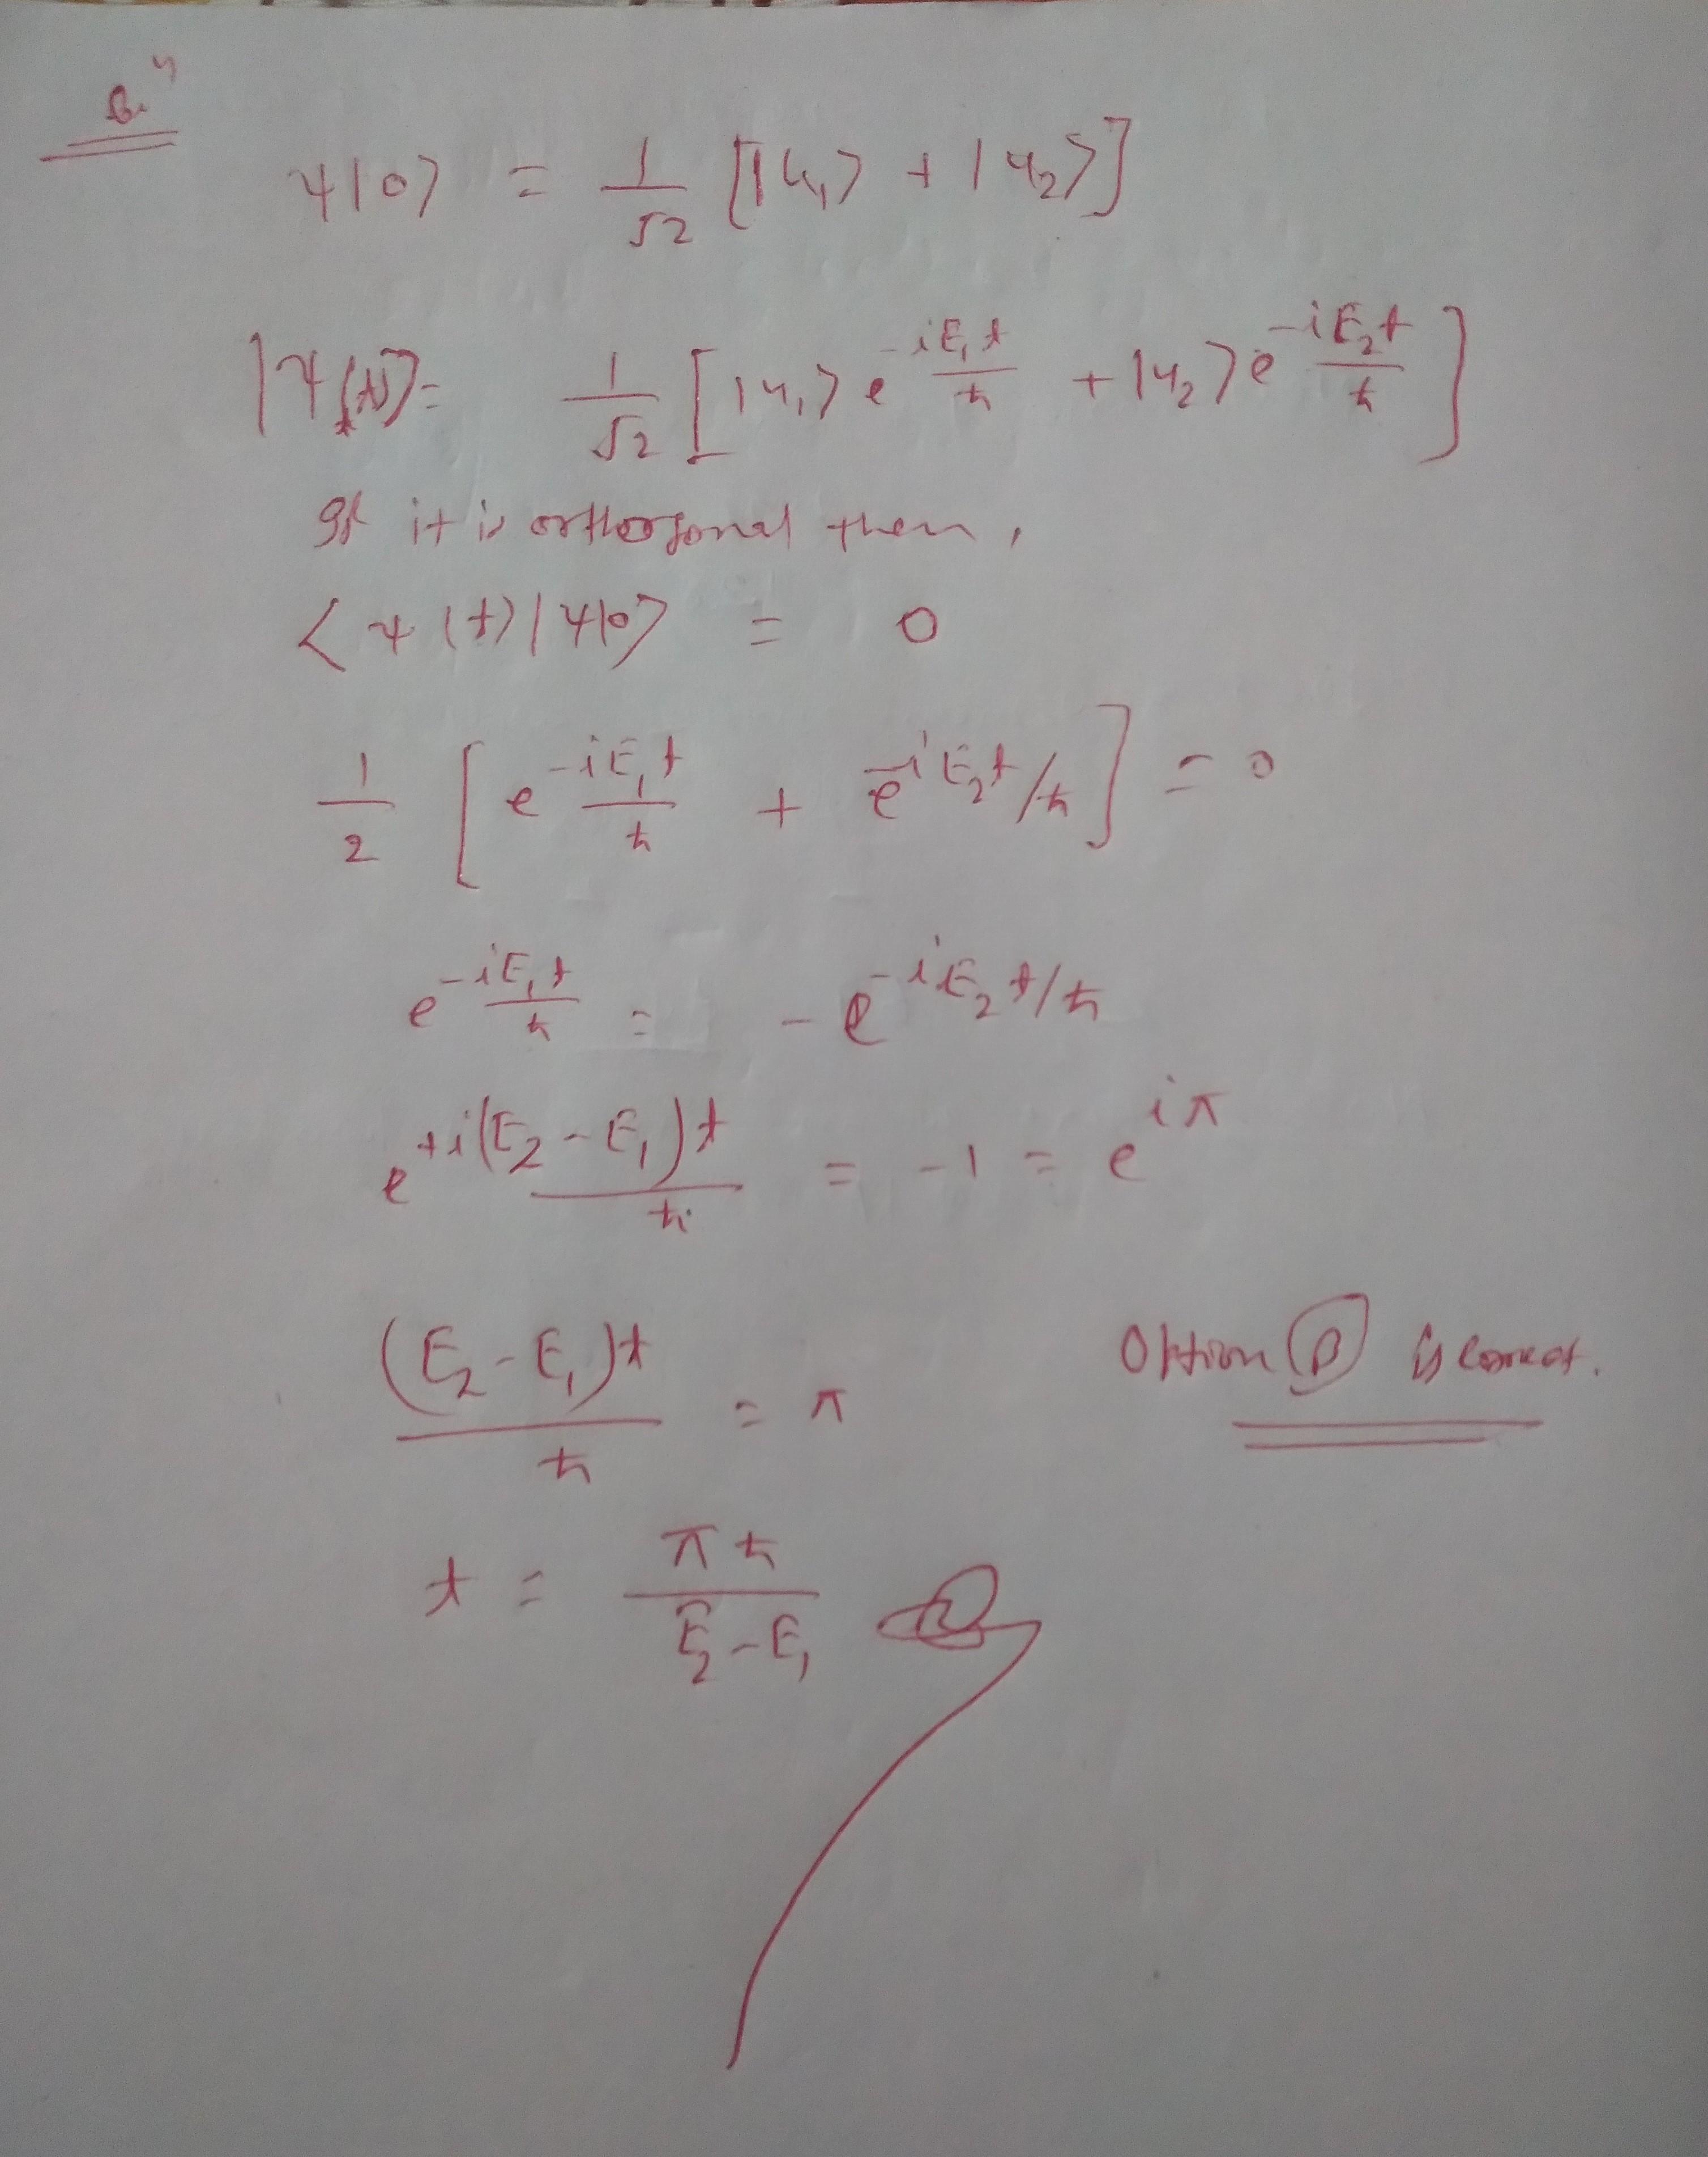 ψ|0⟩ = 1/√2 [|u₁⟩ + |u₂⟩]
|ψ(t)⟩ = 1/√2 [|u₁⟩ e^(-iE₁t/ħ) + |u₂⟩ e^(-iE₂t/ħ)]
If it is orthogonal then,
⟨ψ(t)|ψ|0⟩ = 0
1/2 [e^(-iE₁t/ħ) + e^(-iE₂t/ħ)] = 0
e^(-iE₁t/ħ) = -e^(-iE₂t/ħ)
e^(+i(E₂-E₁)t/ħ) = -1 = e^(iπ)
(E₂-E₁)t/ħ = π
Option B is correct.
t = πħ/(E₂-E₁)